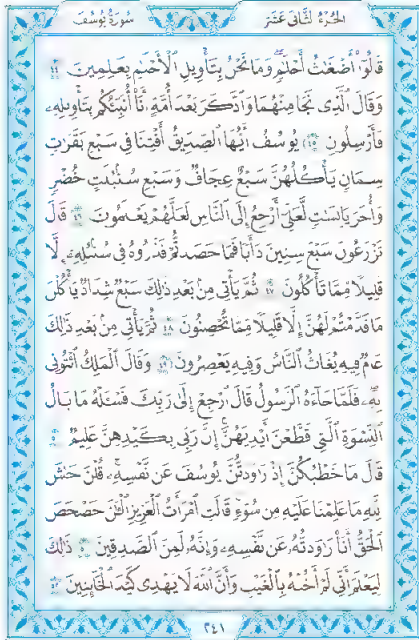 سُورَةُ يُوسُفَ الجُزءُ الثَّانِي عَشَرَ
قَالُوٓا۟ أَضْغَـٰثُ أَحْلَـٰمٍۢ وَمَا نَحْنُ بِتَأْوِيلِ ٱلْأَحْلَـٰمِ بِعَـٰلِمِينَ ٤٤
وَقَالَ ٱلَّذِى نَجَا مِنْهُمَا وَٱدَّكَرَ بَعْدَ أُمَّةٍ أَنَا۠ أُنَبِّئُكُم بِتَأْوِيلِهِۦ
فَأَرْسِلُونِ ٤٥ يُوسُفُ أَيُّهَا ٱلصِّدِّيقُ أَفْتِنَا فِى سَبْعِ بَقَرَٰتٍۢ
سِمَانٍۢ يَأْكُلُهُنَّ سَبْعٌ عِجَافٌۭ وَسَبْعِ سُنۢبُلَـٰتٍ خُضْرٍۢ
وَأُخَرَ يَابِسَـٰتٍۢ لَّعَلِّىٓ أَرْجِعُ إِلَى ٱلنَّاسِ لَعَلَّهُمْ يَعْلَمُونَ ٤٦ قَالَ
تَزْرَعُونَ سَبْعَ سِنِينَ دَأَبًۭا فَمَا حَصَدتُّمْ فَذَرُوهُ فِى سُنۢبُلِهِۦٓ إِلَّا
قَلِيلًۭا مِّمَّا تَأْكُلُونَ ٤٧ ثُمَّ يَأْتِى مِنۢ بَعْدِ ذَٰلِكَ سَبْعٌۭ شِدَادٌۭ يَأْكُلْنَ
مَا قَدَّمْتُمْ لَهُنَّ إِلَّا قَلِيلًۭا مِّمَّا تُحْصِنُونَ ٤٨ ثُمَّ يَأْتِى مِنۢ بَعْدِ ذَٰلِكَ
عَامٌۭ فِيهِ يُغَاثُ ٱلنَّاسُ وَفِيهِ يَعْصِرُونَ ٤٩ وَقَالَ ٱلْمَلِكُ ٱئْتُونِى
بِهِۦ ۖ فَلَمَّا جَآءَهُ ٱلرَّسُولُ قَالَ ٱرْجِعْ إِلَىٰ رَبِّكَ فَسْـَٔلْهُ مَا بَالُ
ٱلنِّسْوَةِ ٱلَّـٰتِى قَطَّعْنَ أَيْدِيَهُنَّ ۚ إِنَّ رَبِّى بِكَيْدِهِنَّ عَلِيمٌۭ ٥٠
قَالَ مَا خَطْبُكُنَّ إِذْ رَٰوَدتُّنَّ يُوسُفَ عَن نَّفْسِهِۦ ۚ قُلْنَ حَـٰشَ
لِلَّهِ مَا عَلِمْنَا عَلَيْهِ مِن سُوٓءٍۢ ۚ قَالَتِ ٱمْرَأَتُ ٱلْعَزِيزِ ٱلْـَٔـٰنَ حَصْحَصَ
ٱلْحَقُّ أَنَا۠ رَٰوَدتُّهُۥ عَن نَّفْسِهِۦ وَإِنَّهُۥ لَمِنَ ٱلصَّـٰدِقِينَ ٥١ ذَٰلِكَ
لِيَعْلَمَ أَنِّى لَمْ أَخُنْهُ بِٱلْغَيْبِ وَأَنَّ ٱللَّهَ لَا يَهْدِى كَيْدَ ٱلْخَآئِنِينَ ٥٢
٢٤١